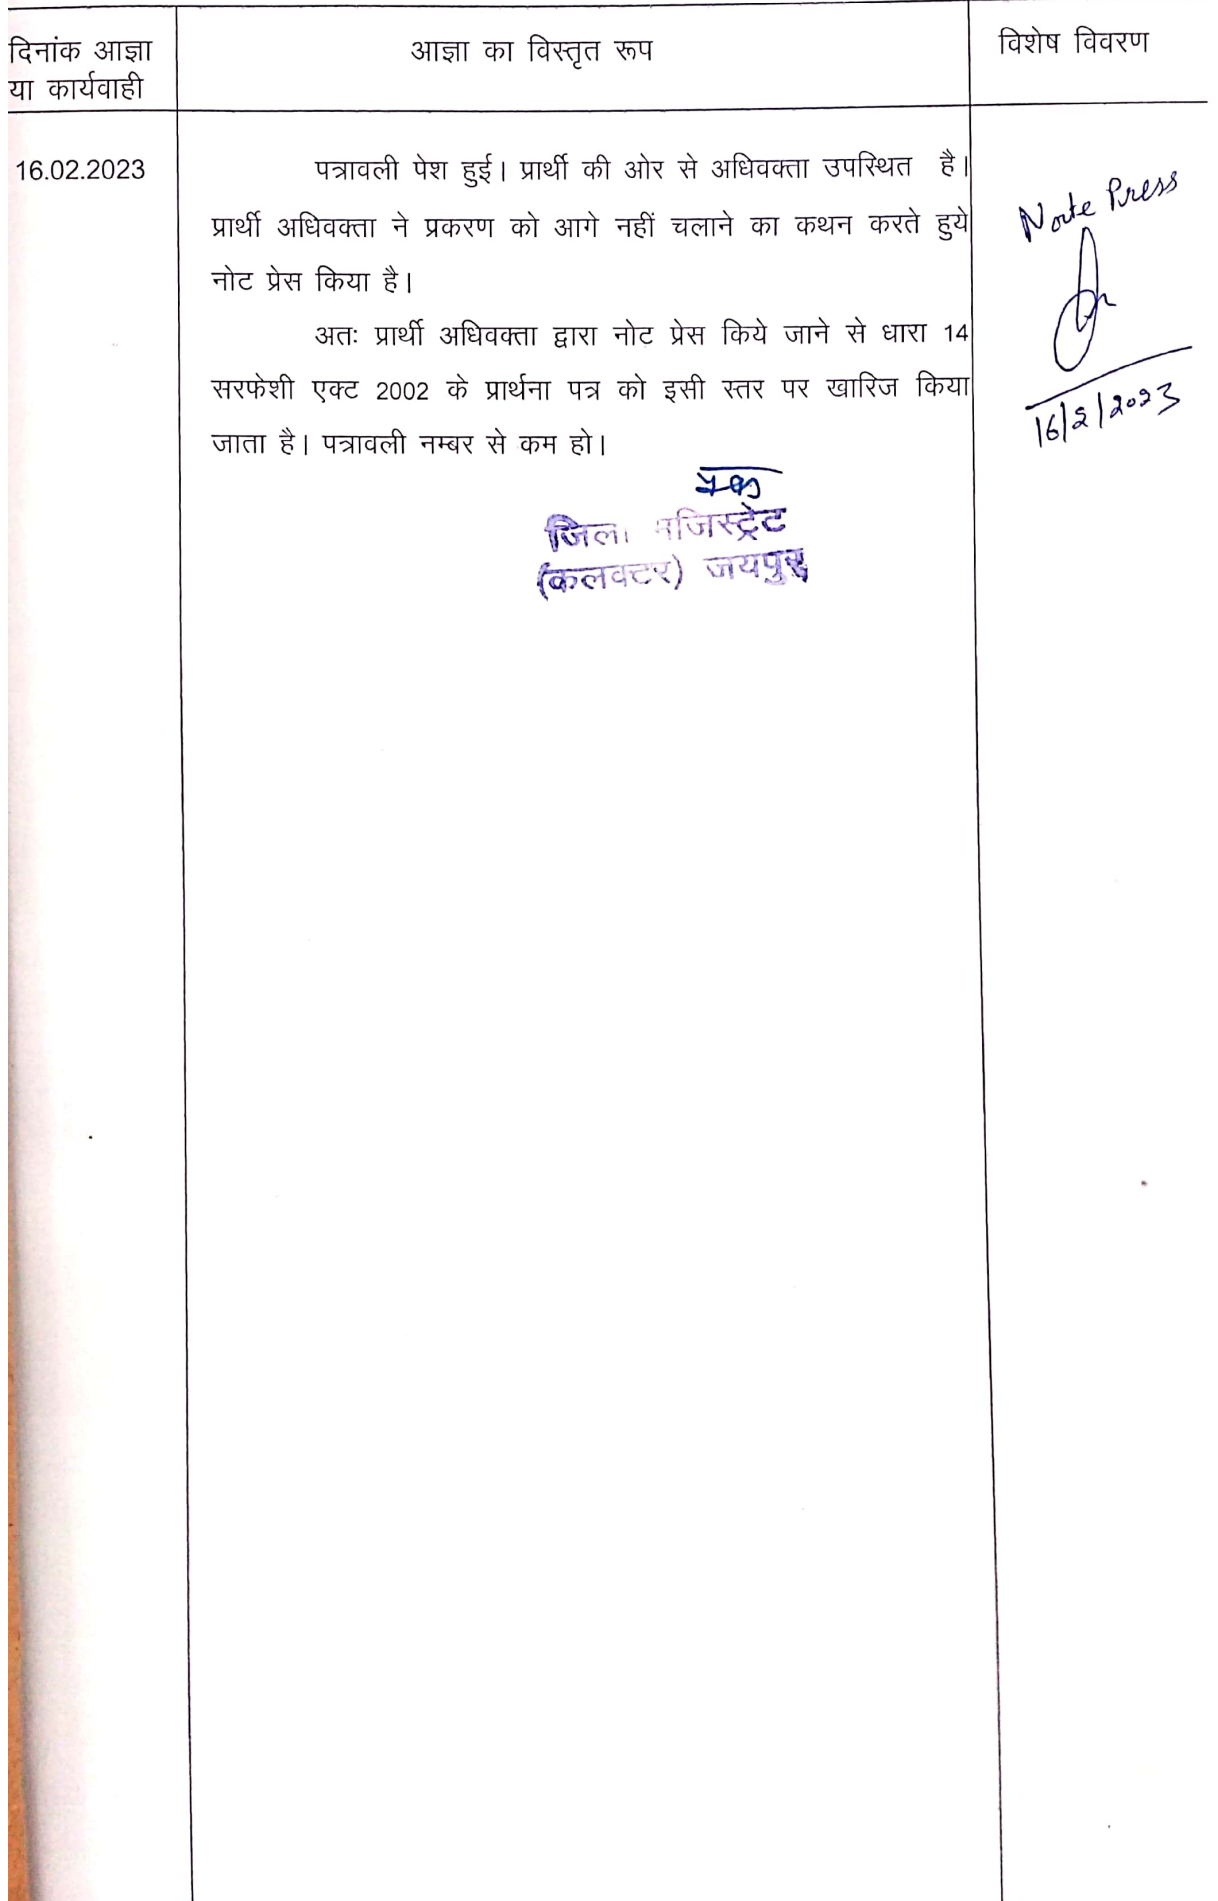 दिनांक आज्ञा
या कार्यवाही
आज्ञा का विस्तृत रूप
विशेष विवरण
16.02.2023
पत्रावली पेश हुई। प्रार्थी की ओर से अधिवक्ता उपस्थित है।
प्रार्थी अधिवक्ता ने प्रकरण को आगे नहीं चलाने का कथन करते हुये
नोट प्रेस किया है।
अतः प्रार्थी अधिवक्ता द्वारा नोट प्रेस किये जाने से धारा 14
सरफेशी एक्ट 2002 के प्रार्थना पत्र को इसी स्तर पर खारिज किया
जाता है। पत्रावली नम्बर से कम हो।
जिला मजिस्ट्रेट
(कलक्टर) जयपुर
Note Press
16/2/2023